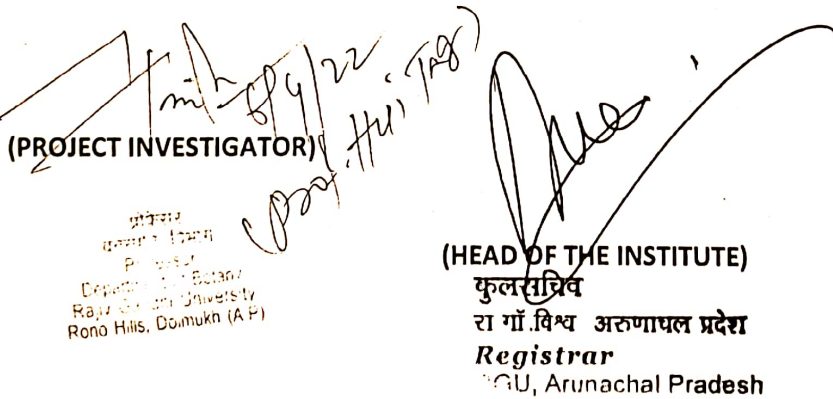 6/4/22
(Prof. Hui Tag)
(PROJECT INVESTIGATOR)
प्रोफेसर
Professor
Department Botany
Rajiv Gandhi University
Rono Hills, Doimukh (A P)
(HEAD OF THE INSTITUTE)
कुलसचिव
रा गाँ.विश्व अरुणाचल प्रदेश
Registrar
RGU, Arunachal Pradesh